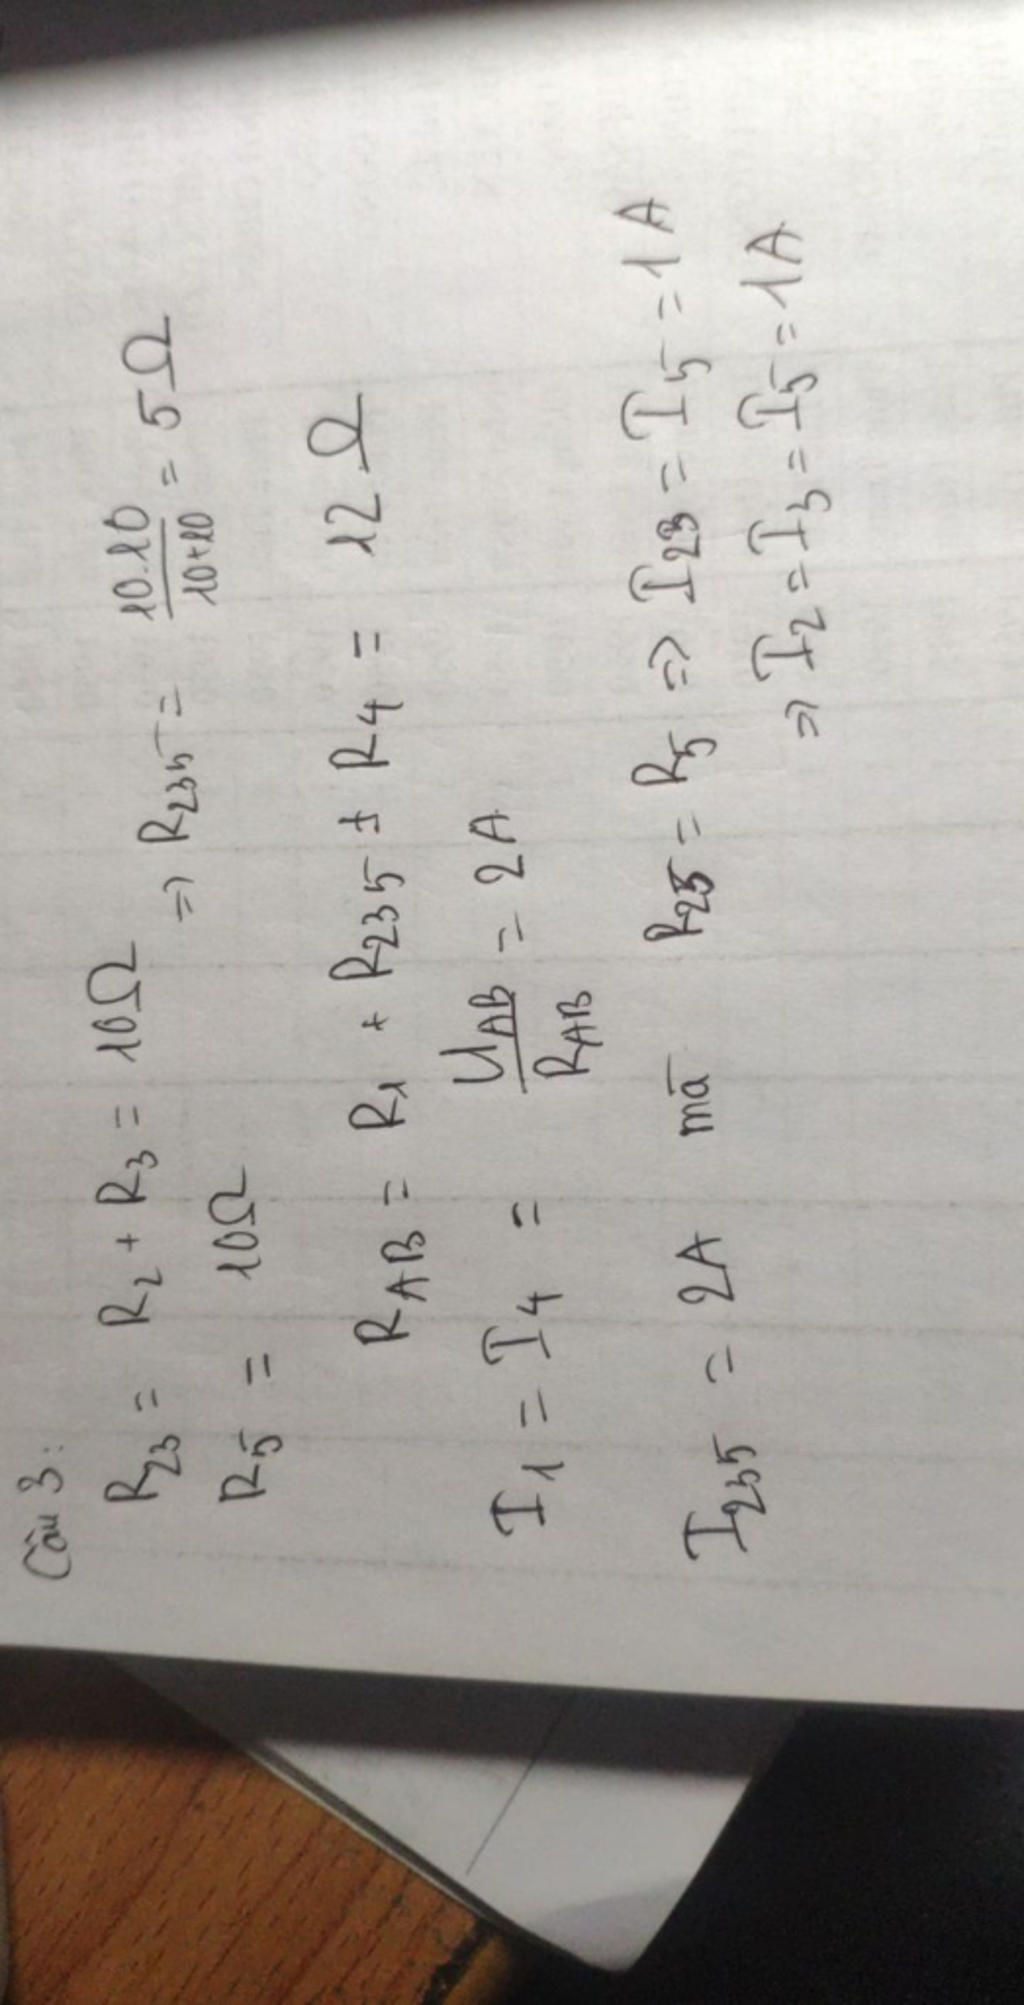 Câu 3:
R23 = R2 + R3 = 10Ω
R5 = 10Ω
⇒ R235 = 10.10/10+10 = 5Ω
RAB = R1 + R235 + R4 = 12Ω
I1 = I4 = UAB/RAB = 2A
I235 = 2A mà R23 = R5 ⇒ I23 = I5 = 1A
⇒ I2 = I3 = I5 = 1A